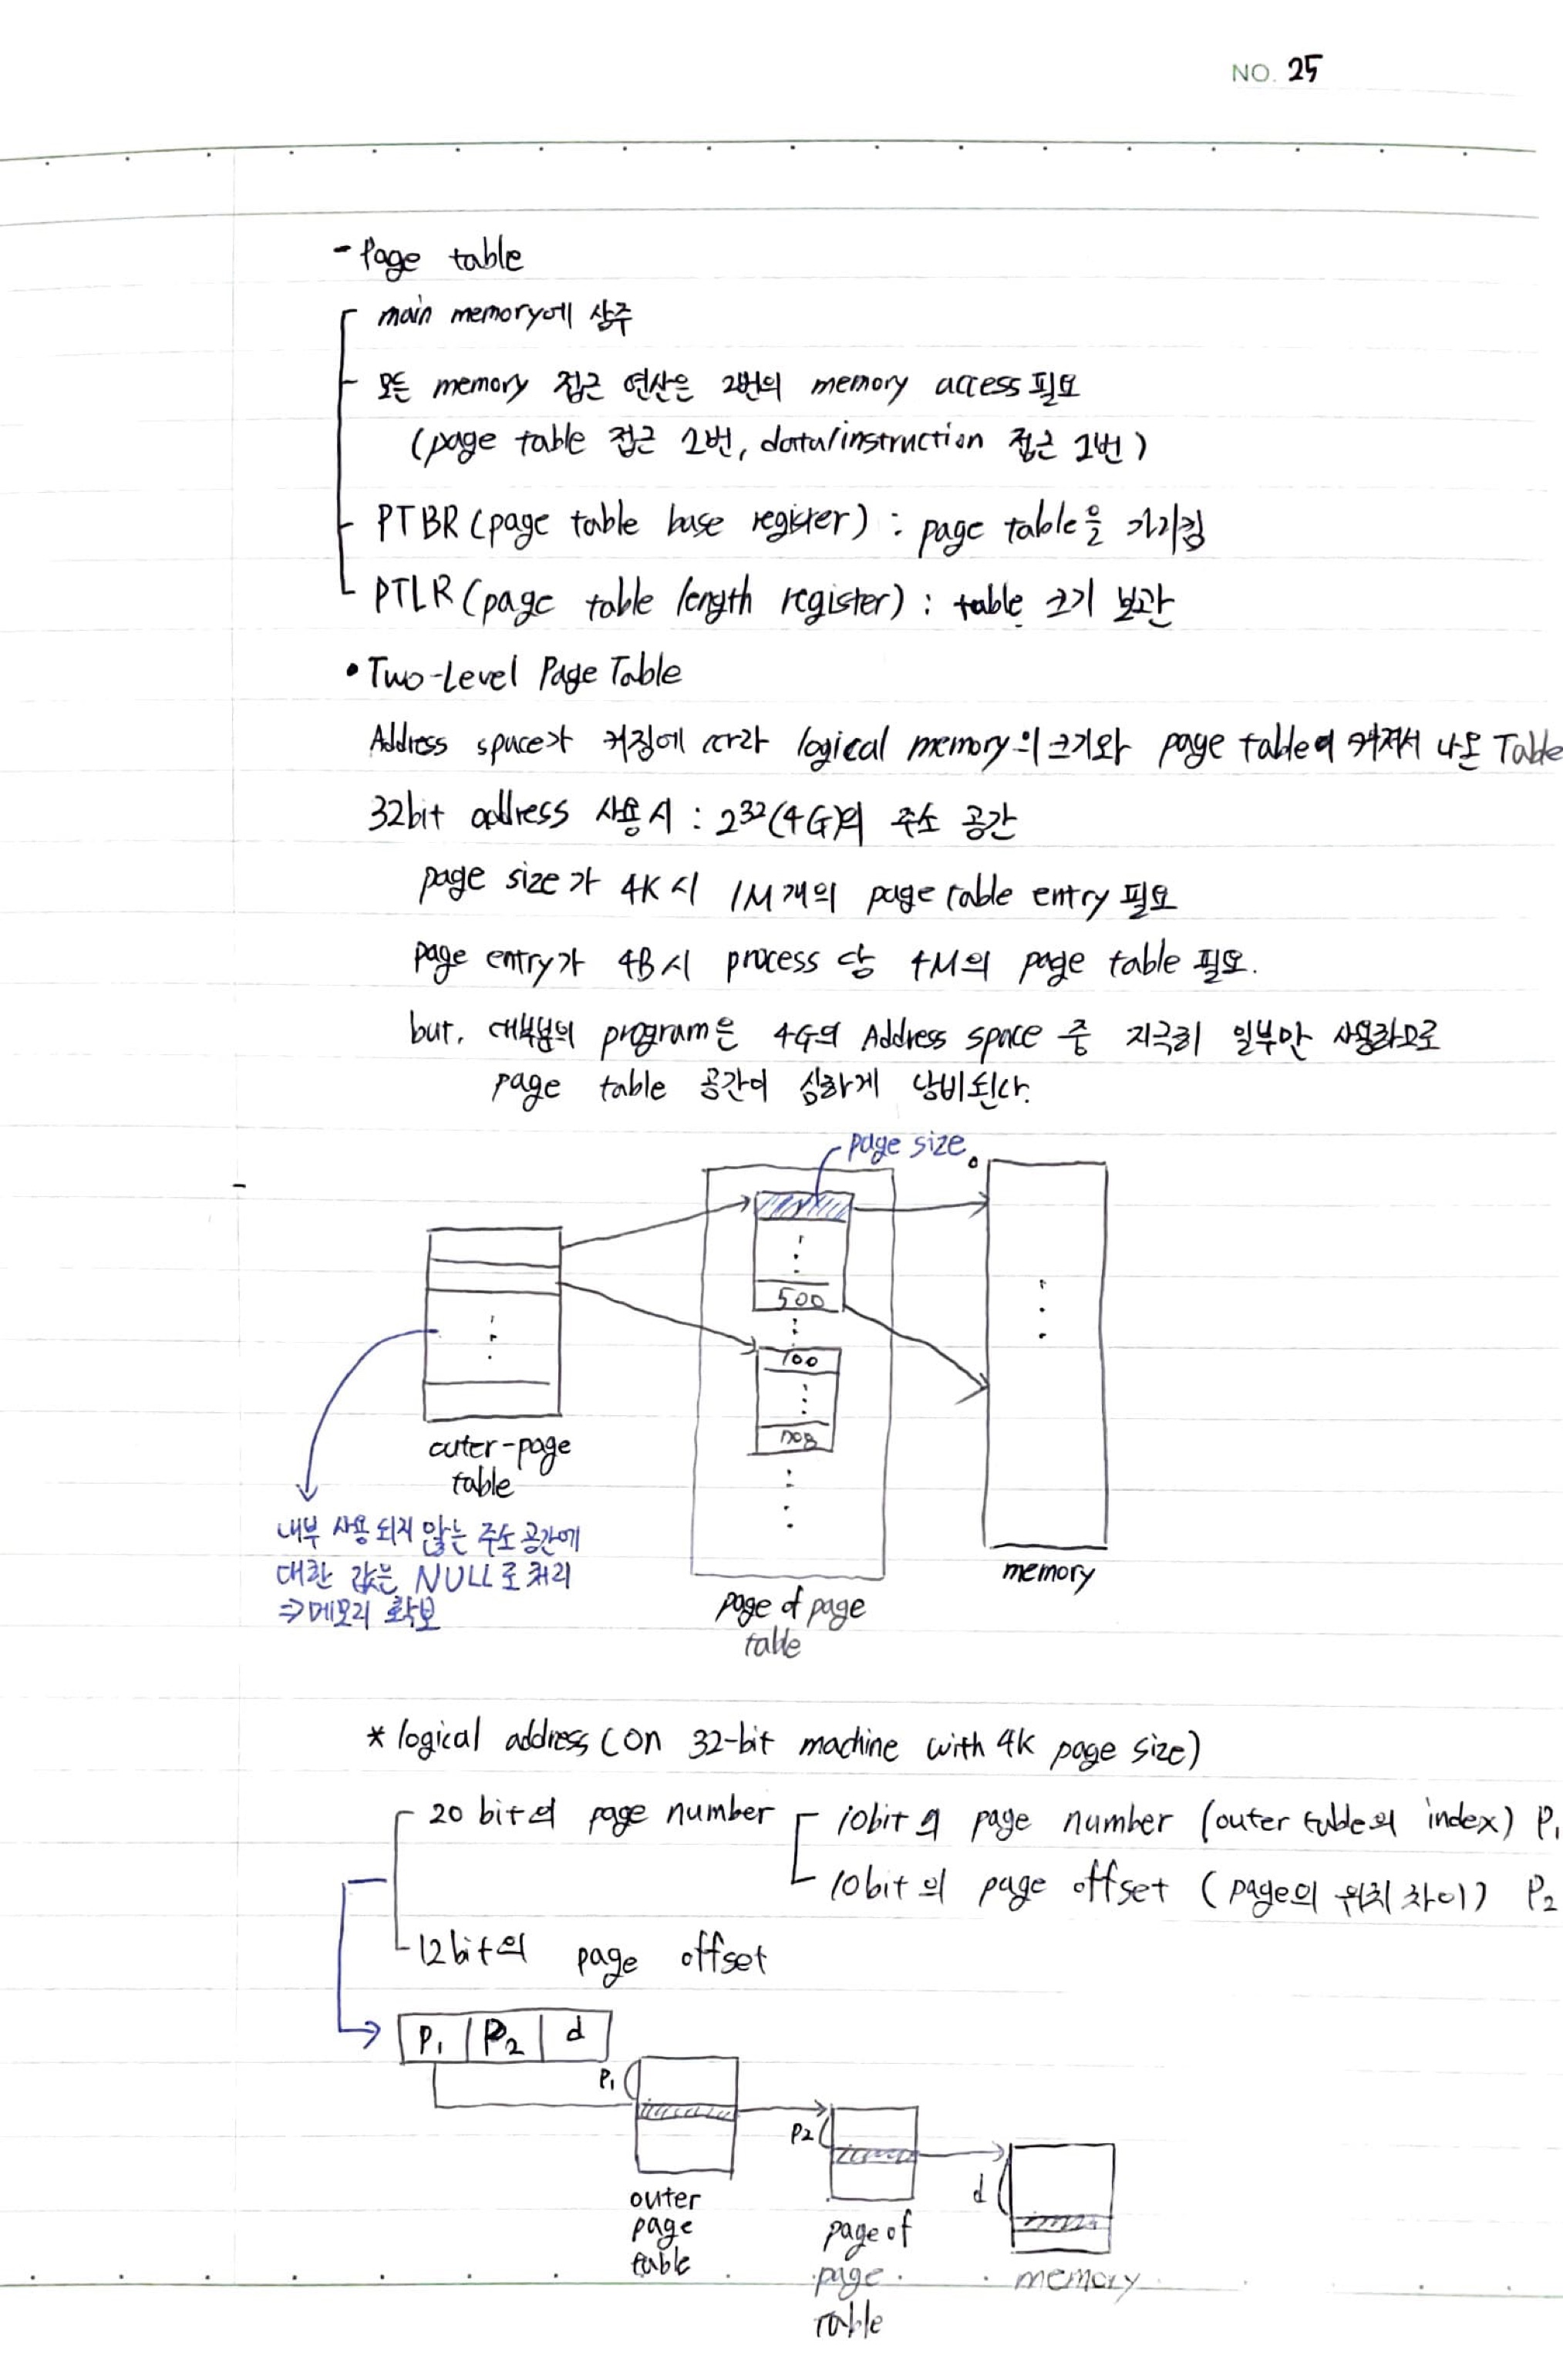 NO. 25
- Page table
main memory에 상주
모든 memory 접근 연산은 2번의 memory access 필요
(page table 접근 1번, data/instruction 접근 1번)
PTBR (page table base register) : page table을 가리킴
PTLR (page table length register) : table 크기 보관
• Two-Level Page Table
Address space가 커짐에 따라 logical memory의 크기와 page table이 커져서 나온 Table
32bit address 사용시 : 2³²(4G)의 주소 공간
page size가 4K시 1M개의 page table entry 필요
page entry가 4B시 process 당 4M의 page table 필요.
but, 대부분의 program은 4G의 Address space 중 지극히 일부만 사용하므로
page table 공간이 심하게 낭비된다.
page size
0
500
100
708
outer-page
table
내부 사용 되지 않는 주소 공간에
대한 값은 NULL로 처리
⇒ 메모리 확보
page of page
table
memory
* logical address (on 32-bit machine with 4K page size)
20 bit의 page number
10bit의 page number (outer table의 index) P₁
10bit의 page offset (page의 위치 차이) P₂
12bit의 page offset
P₁ P₂ d
P₁
P2
d
outer
page
table
page of
page
table
memory